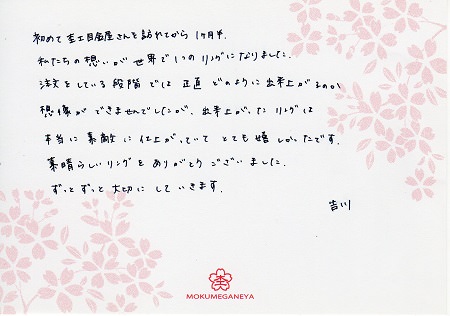 初めて杢目金屋さんを訪れてから 1ヶ月半.
私たちの想いが世界で1つのリングになりました.
注文をしている段階では正直どのように出来上がるのか
想像ができませんでしたが、出来上がったリングは
本当に素敵に仕上がっていてとても嬉しかったです.
素晴らしいリングをありがとうございました.
ずっとずっと大切にしていきます.
吉川
杢
MOKUMEGANEYA